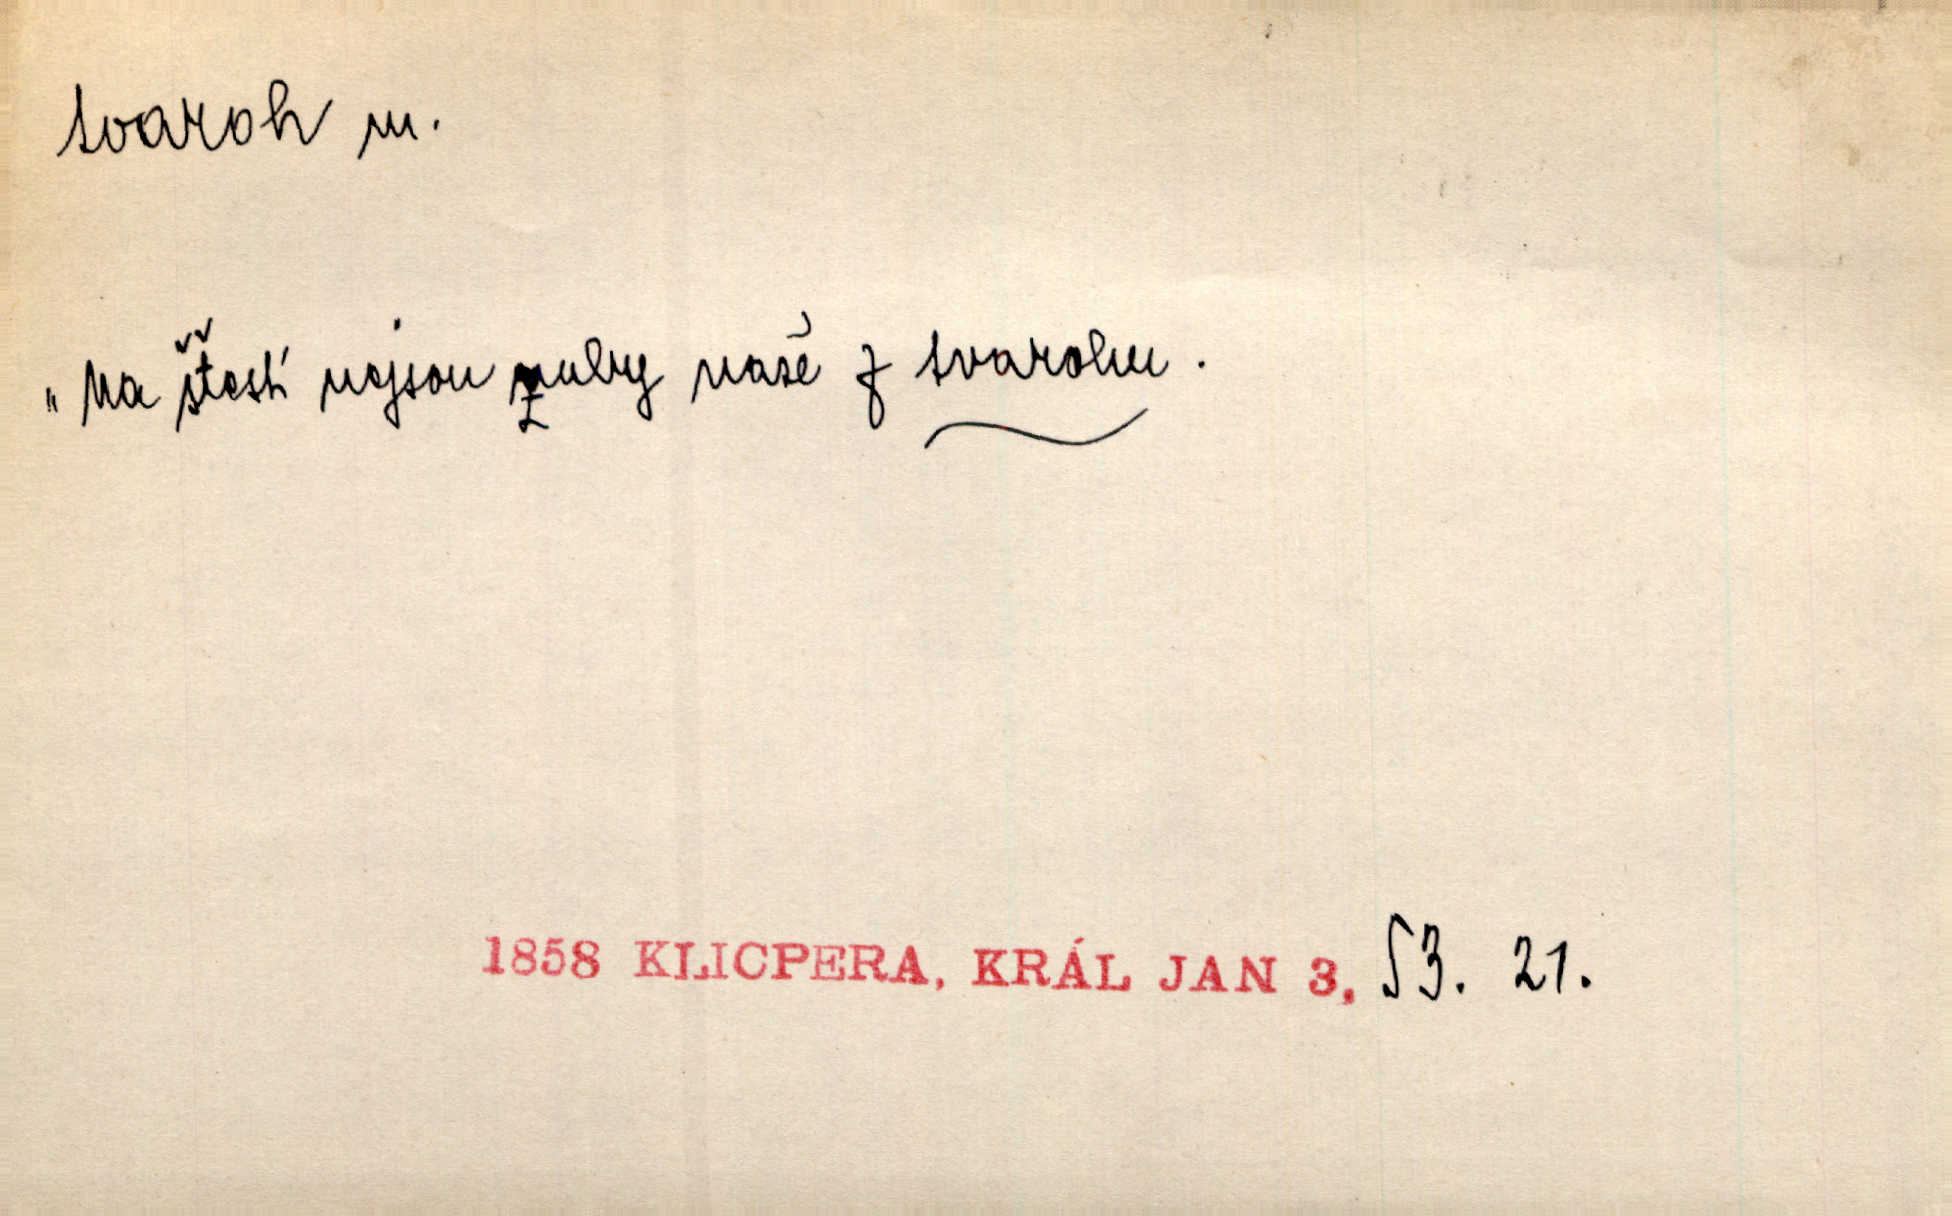 tvaroh m.
„Na štestí nejsou zuby naše z tvarohu.
1858 KLICPERA, KRÁL JAN 3, 53. 21.